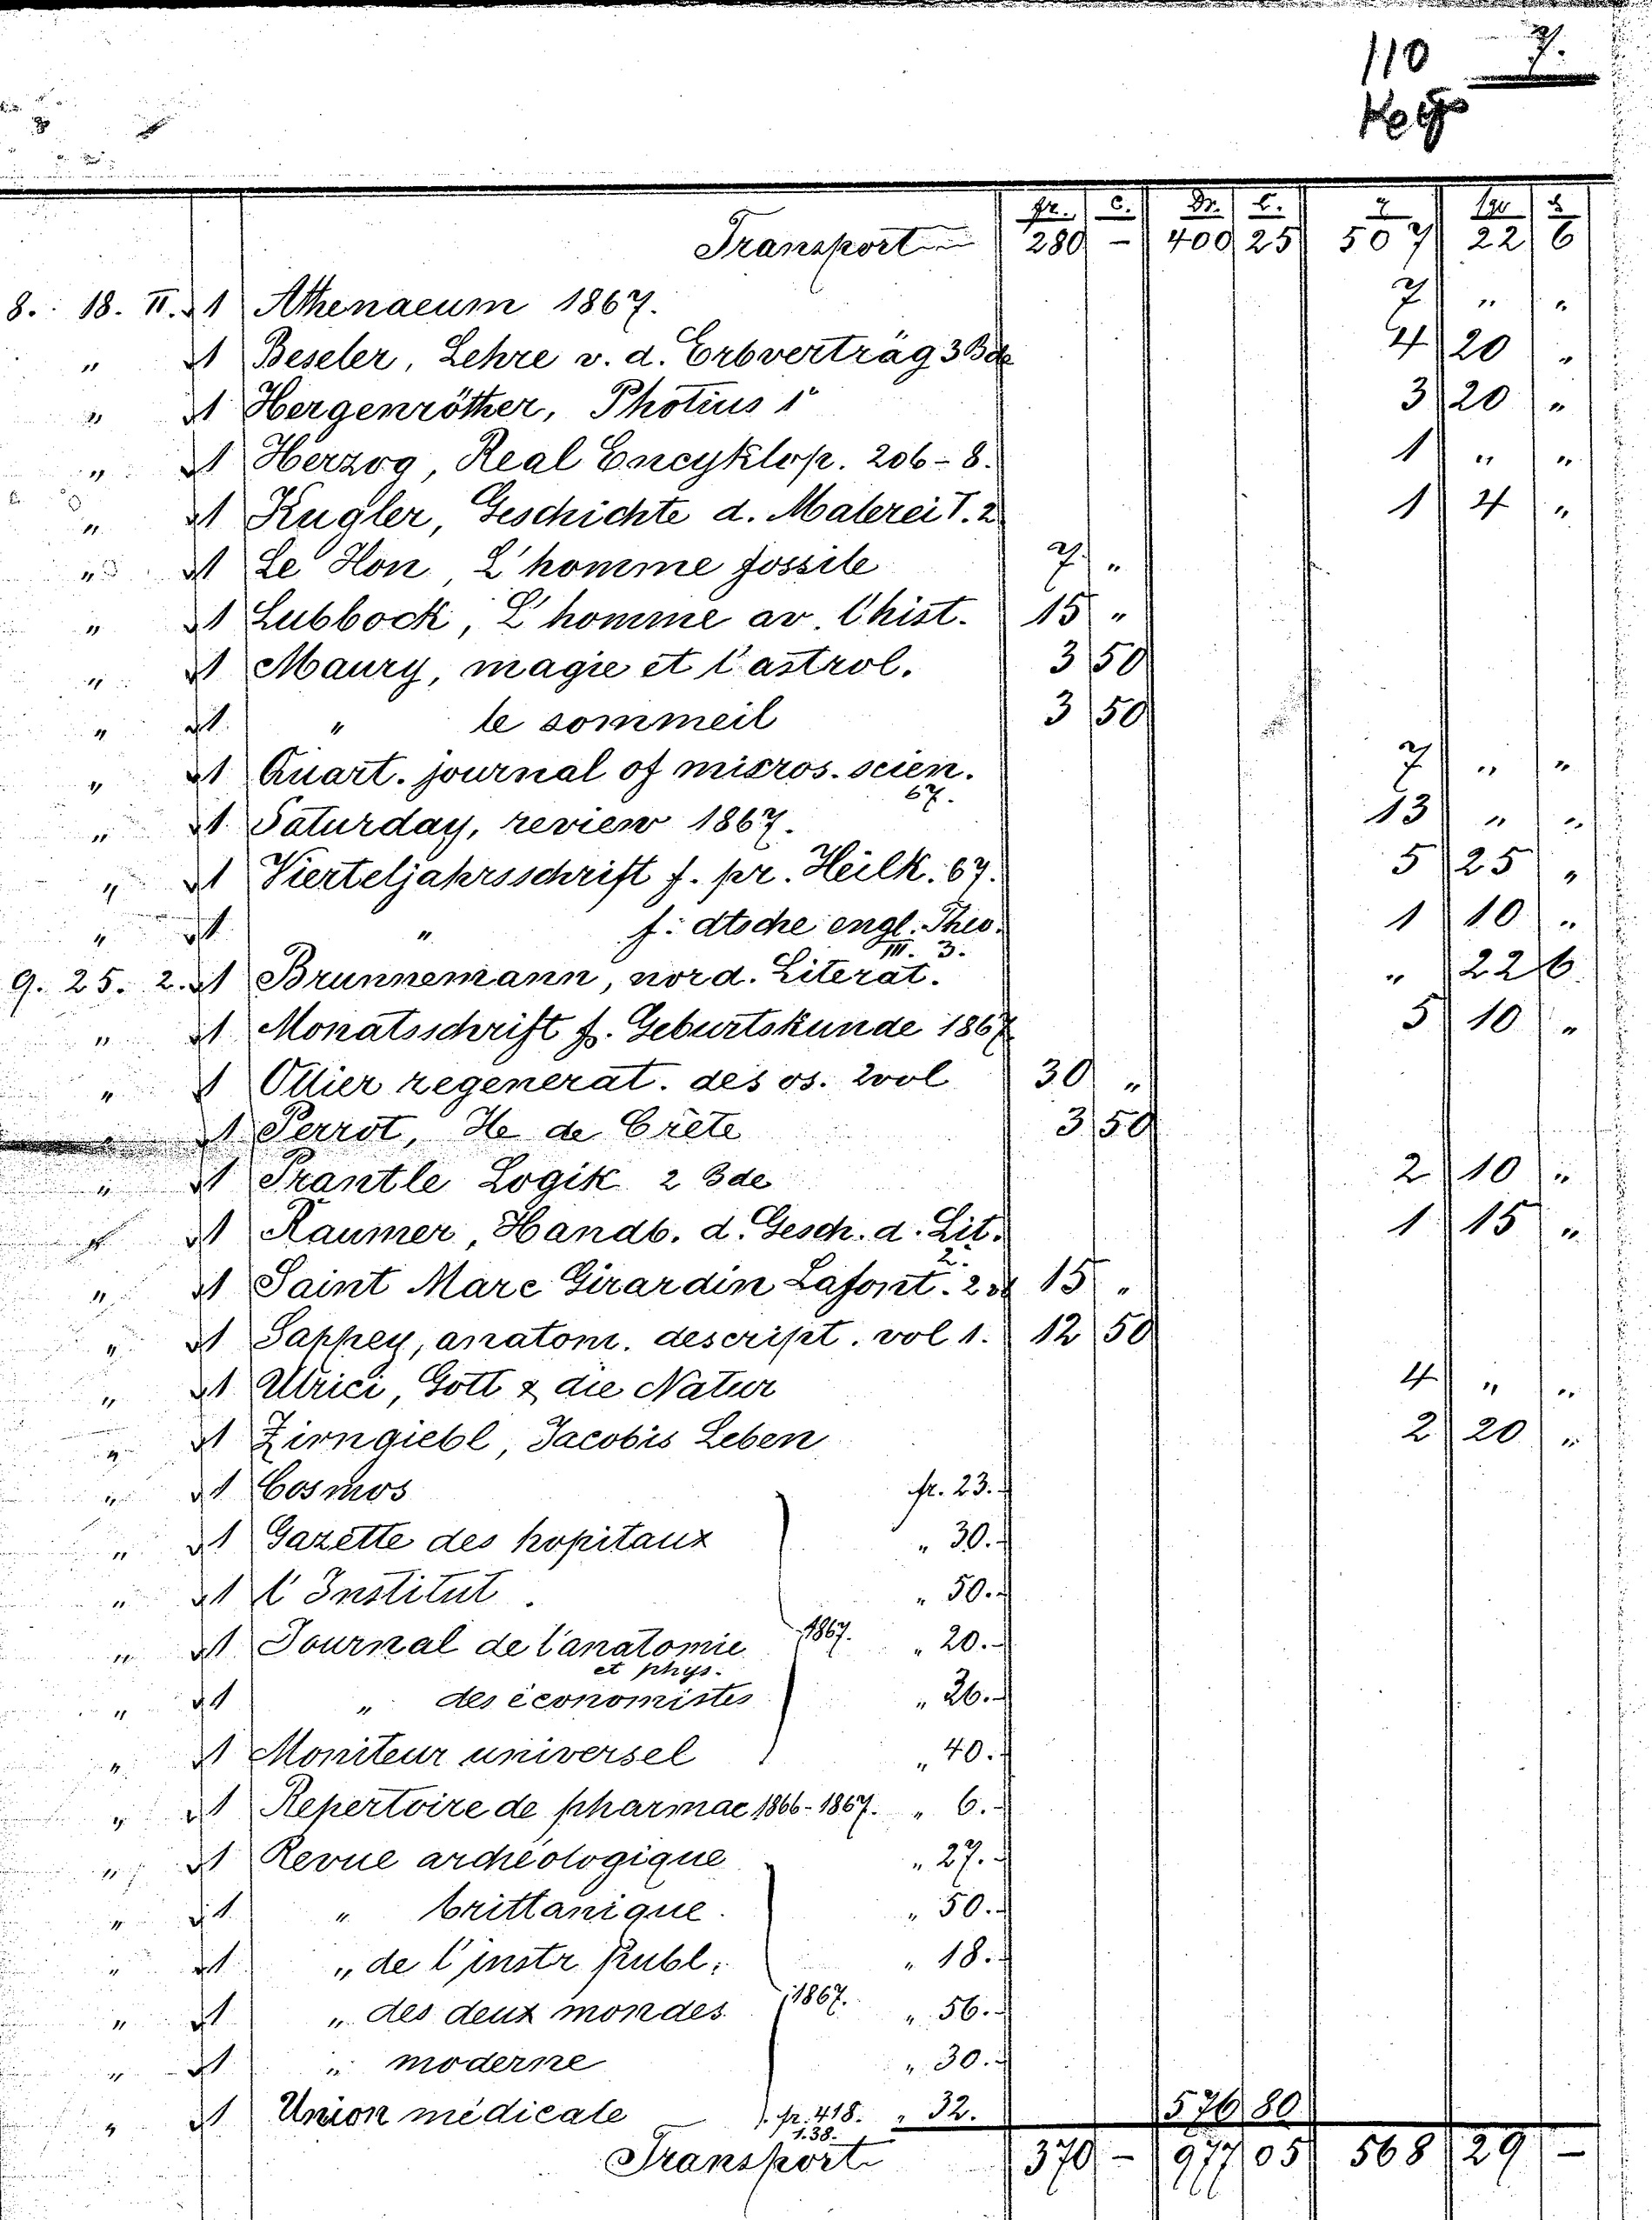 110 7.
fr. c. Dr. l.
Transport 280 — 400 25 507 22 6
8. 18. II. 1 Athenaeum 1867. 7 " "
" 1 Beseler, Lehre v. d. Erbverträg 3 Bde 4 20 "
" 1 Hergenröther, Photius 1° 3 20 "
" 1 Herzog, Real Encyklop. 206-8. 1 " "
" 1 Kugler, Geschichte d. Malerei T. 2 1 4 "
" 1 Le Hon, L'homme fossile 7 "
" 1 Lubbock, L'homme av. l'hist. 15 "
" 1 Maury, magie et l'astrol. 3 50
" 1 " le sommeil 3 50
" 1 Quart. journal of micros. scien. 7 " "
67.
" 1 Saturday, review 1867. 13 " "
" 1 Vierteljahrsschrift f. pr. Heilk. 67. 5 25 "
" 1 " f. dtsche engl. Theo. 1 10 "
III. 3.
9. 25. 2. 1 Brunnemann, nord. Literat. " 22 6
" 1 Monatsschrift f. Geburtskunde 1867 5 10 "
" 1 Ollier regenerat. des os. 2 vol 30 "
" 1 Perrot, Ile de Crète 3 50
" 1 Prantle Logik 2 Bde 2 10 "
" 1 Raumer, Handb. d. Gesch. d. Lit. 1 15 "
2.
" 1 Saint Marc Girardin Lafont. 2 15 "
" 1 Sappey, anatom. descript. vol 1. 12 50
" 1 Ulrici, Gott & die Natur 4 " "
" 1 Zirngiebl, Jacobis Leben 2 20 "
" 1 Cosmos fr. 23.-
" 1 Gazette des hopitaux " 30.-
" 1 l'Institut. " 50.-
" 1 Journal de l'anatomie 1867. " 20.-
et phys.
" 1 " des économistes " 36.-
" 1 Moniteur universel " 40.-
" 1 Repertoire de pharmac 1866-1867. " 6.-
" 1 Revue archéologique " 27.-
" 1 " brittanique. " 50.-
" 1 " de l'instr publ. " 18.-
" 1 " des deux mondes 1867. " 56.-
" 1 " moderne " 30.-
" 1 Union médicale fr. 418. " 32. 576 80
1.38.
Transport 370 — 977 05 568 29 —